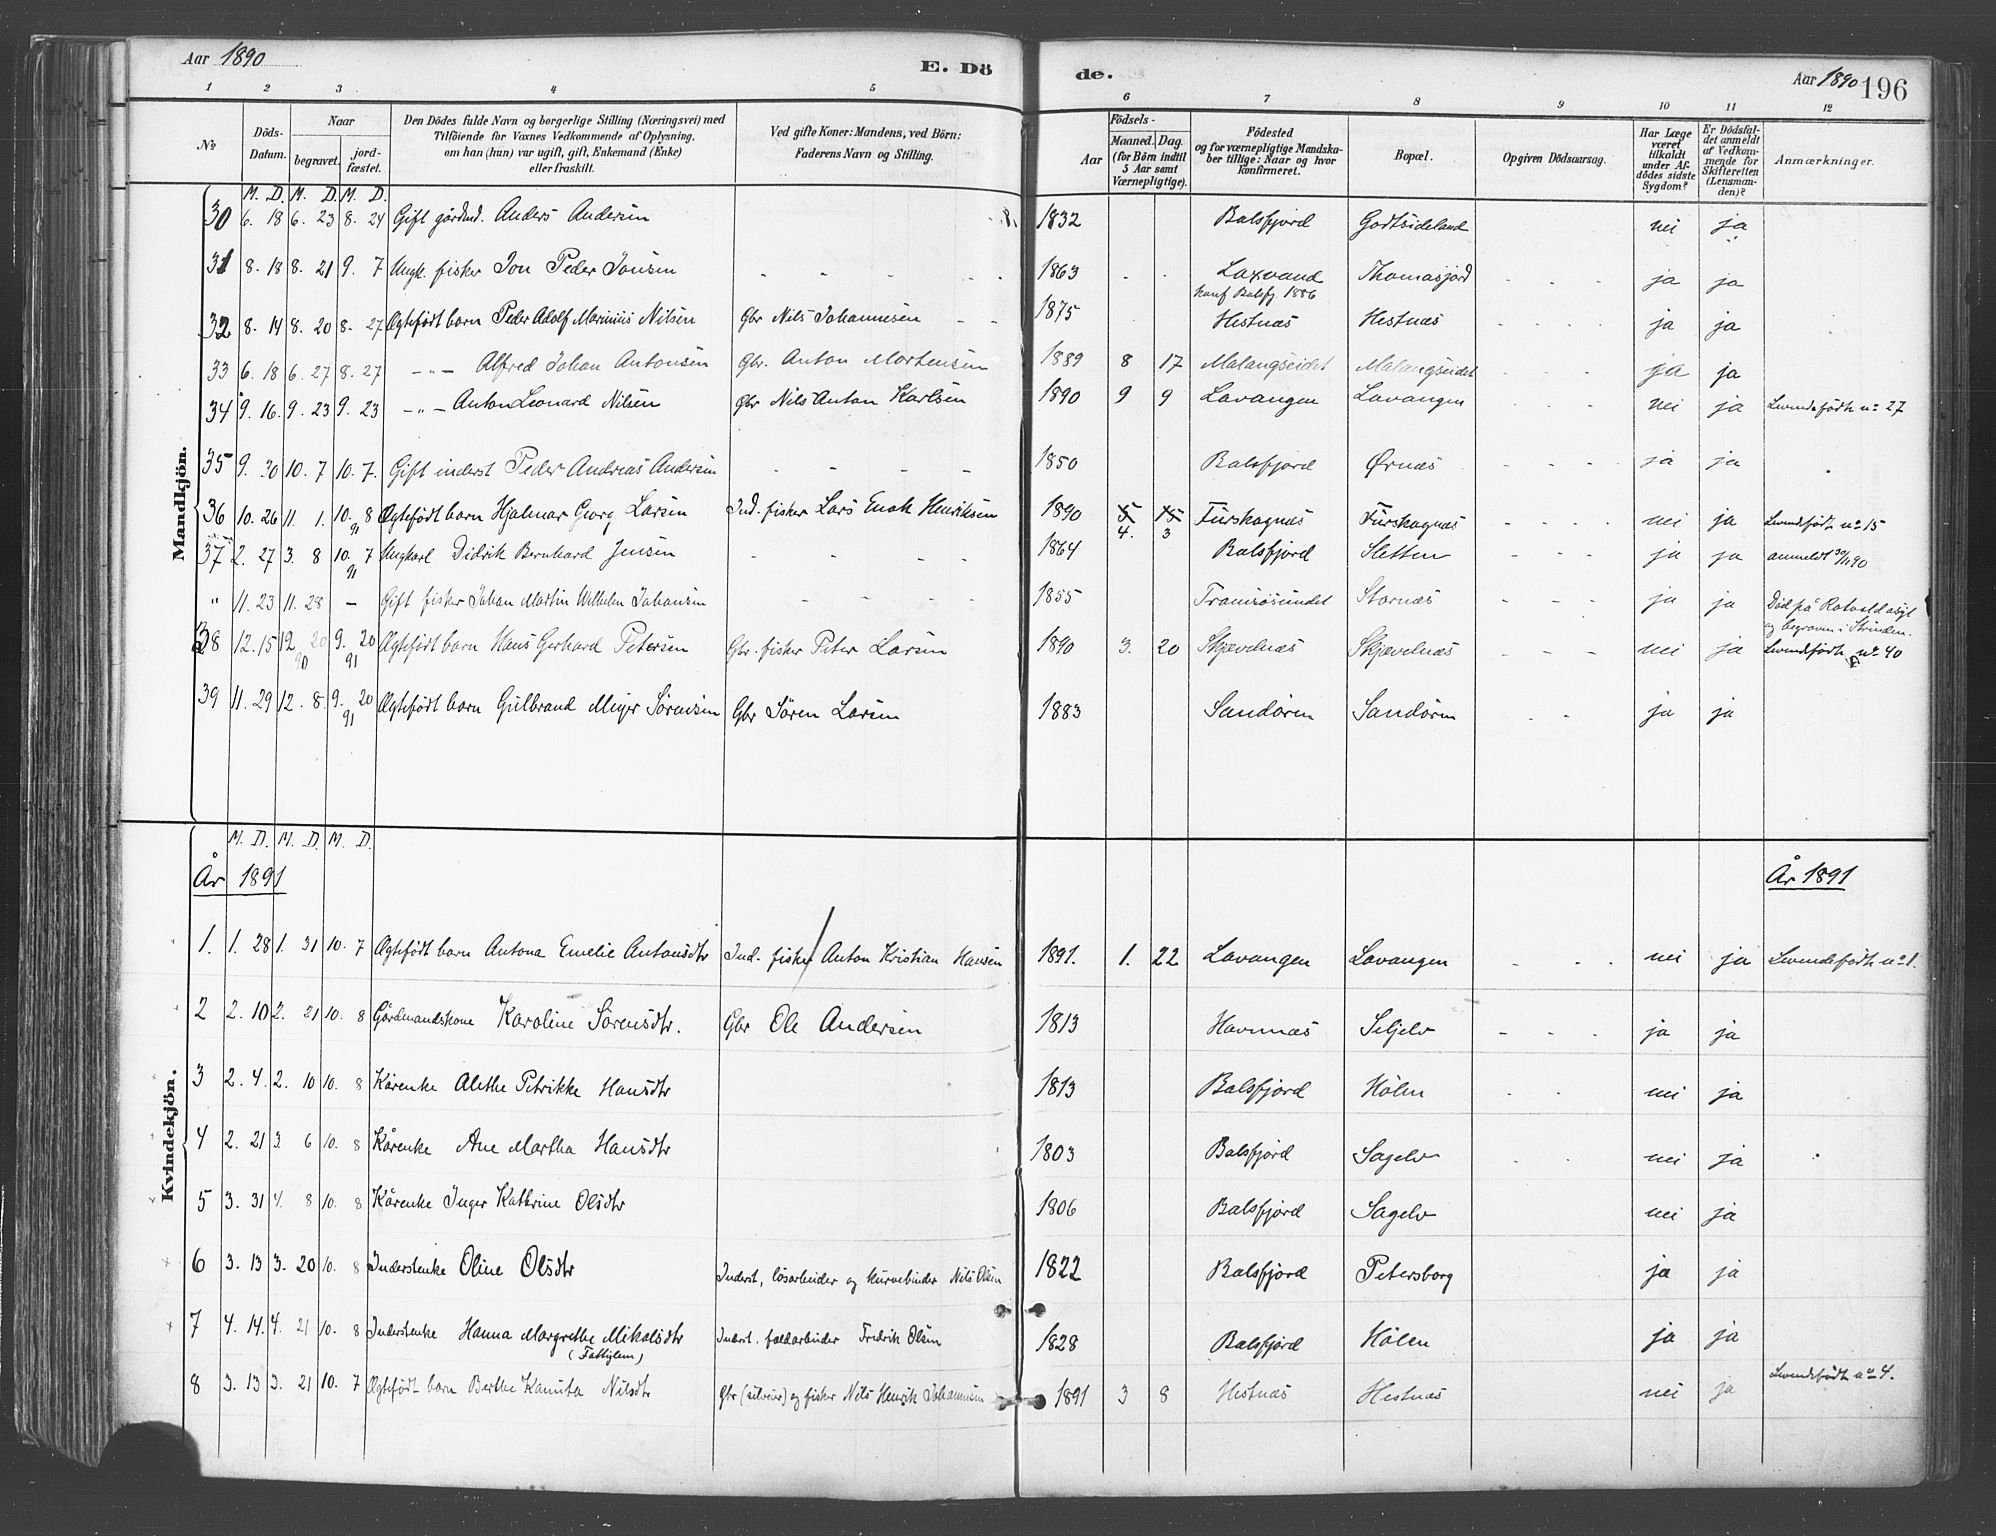 Aar 1890 E. Dö de. Aar 1890 196
1 2 3 4 5 6 7 8 9 10 11 12
№ Döds-Datum. Naar begravet. jord-fæstet. Den Dödes fulde Navn og borgerlige Stilling (Næringsvei) med Tilföiende for Voxnes Vedkommende af Oplysning, om han (hun) var ugift, gift, Enkemand (Enke) eller fraskilt. Ved gifte Koner: Mandens, ved Börn: Faderens Navn og Stilling. Födsels- Aar Maaned. Dag. (for Börn indtil 5 Aar samt Værnepligtige). Födested og for værnepligtige Mandskaber tillige: Naar og hvor konfirmeret. Bopæl. Opgiven Dödsaarsag. Har Læge været tilkaldt under Afdödes sidste Sygdom? Er Dödsfaldet anmeldt af Vedkommende for Skifteretten (Lensmanden)? Anmærkninger.
Mandkjön.
M. D. M. D. M. D.
30 6. 18 6. 23 8. 24 Gift gårdmd. Anders Andersen 1832 Balsfjord Godtsideland nei ja
31 8. 18 8. 21 9. 7 Ungk. fisker Jon Peder Jonsen 1863 Laxvand Thomasjord ja ja
konf Balsfj. 1886
32 8. 14 8. 20 8. 27 Ægtefödt barn Peder Adolf Marinius Nilsen Gbr Nils Johannesen 1875 Hestnæs Hestnæs ja ja
33 6. 18 6. 27 8. 27 -"- Alfred Johan Antonsen Gbr. Anton Mortensen 1889 8 17 Malangseidet Malangseidet ja ja
34 9. 16. 9. 23 9. 23 -"- Anton Leonard Nilsen Gbr Nils Anton Karlsen 1890 9 9 Lavangen Lavangen nei ja Levendefödt no 27
35 9. 30 10. 7 10. 7. Gift inderst Peder Andreas Andersen 1850 Balsfjord Ørnæs ja ja
36 10. 26 11. 1. 10. 8 Ægtefödt barn Hjalmar Georg Larsen Ind. fisker Lars Enok Henriksen 1890 5 15 Furskognæs Furskognæs nei ja Levendefödt no 15
91 4. 3
37 2. 27 3. 8 10. 7 Ungkarl Didrik Bernhard Jensen 1864 Balsfjord Sletten ja ja anmeldt 30/11 90
91
" 11. 23 11. 28 - Gift fisker Johan Martin Wilhelm Johansen 1855 Tromsösundet Stornæs ja ja Död på Rotvold asyl
og begraven i Strinden.
38 12. 15 12. 20 9. 20 Ægtefödt barn Hans Gerhard Petersen Gbr. fisker Peter Larsen 1890 3. 20 Skjævelnæs Skjævelnæs nei ja Levendefödt no 40
90 91
39 11. 29 12. 8. 9. 20 Ægtefödt barn Gulbrand Meyer Sörensen Gbr Sören Larsen 1883 Sandören Sandören ja ja
91
Kvindekjön.
M. D. M. D. M. D.
År 1891 År 1891
1. 1. 28 1. 31 10. 7 Ægtefödt barn Antona Emelie Antonsdtr Ind. fisker Anton Kristian Hansen 1891. 1. 22 Lavangen Lavangen nei ja Levendefödt no 1.
2 2. 10 2. 21 10. 8 Gårdmandskone Karoline Sörensdtr. Gbr Ole Andersen 1813 Havnnæs Seljelv ja ja
3 2. 4. 2. 10 10. 8 Kårenke Alethe Petrikke Hansdtr 1813 Balsfjord Hölen nei ja
4 2. 21 3. 6 10. 8 Kårenke Ane Martha Hansdtr 1803 Balsfjord Sagelv nei ja
5 3. 31 4. 8 10. 8 Kårenke Inger Kathrine Olsdtr 1806 Balsfjord Sagelv nei ja
6 3. 13 3. 20 10. 8 Inderstenke Oline Olsdtr Inderst, lösarbeider og kurvebinder Nils Olsen 1822 Balsfjord Petersborg ja ja
7 4. 14. 4. 21 10. 8 Inderstenke Hanna Margrethe Mikalsdtr Inderst. Fredrik Olsen 1828 Balsfjord Hölen ja ja
(Fattiglem)
8 3. 13 3. 21 10. 7 Ægtefödt barn Berthe Kanuta Nilsdtr Gbr og fisker Nils Henrik Johannesen 1891 3 8 Hestnæs Hestnæs nei ja Levendefödt no 4.